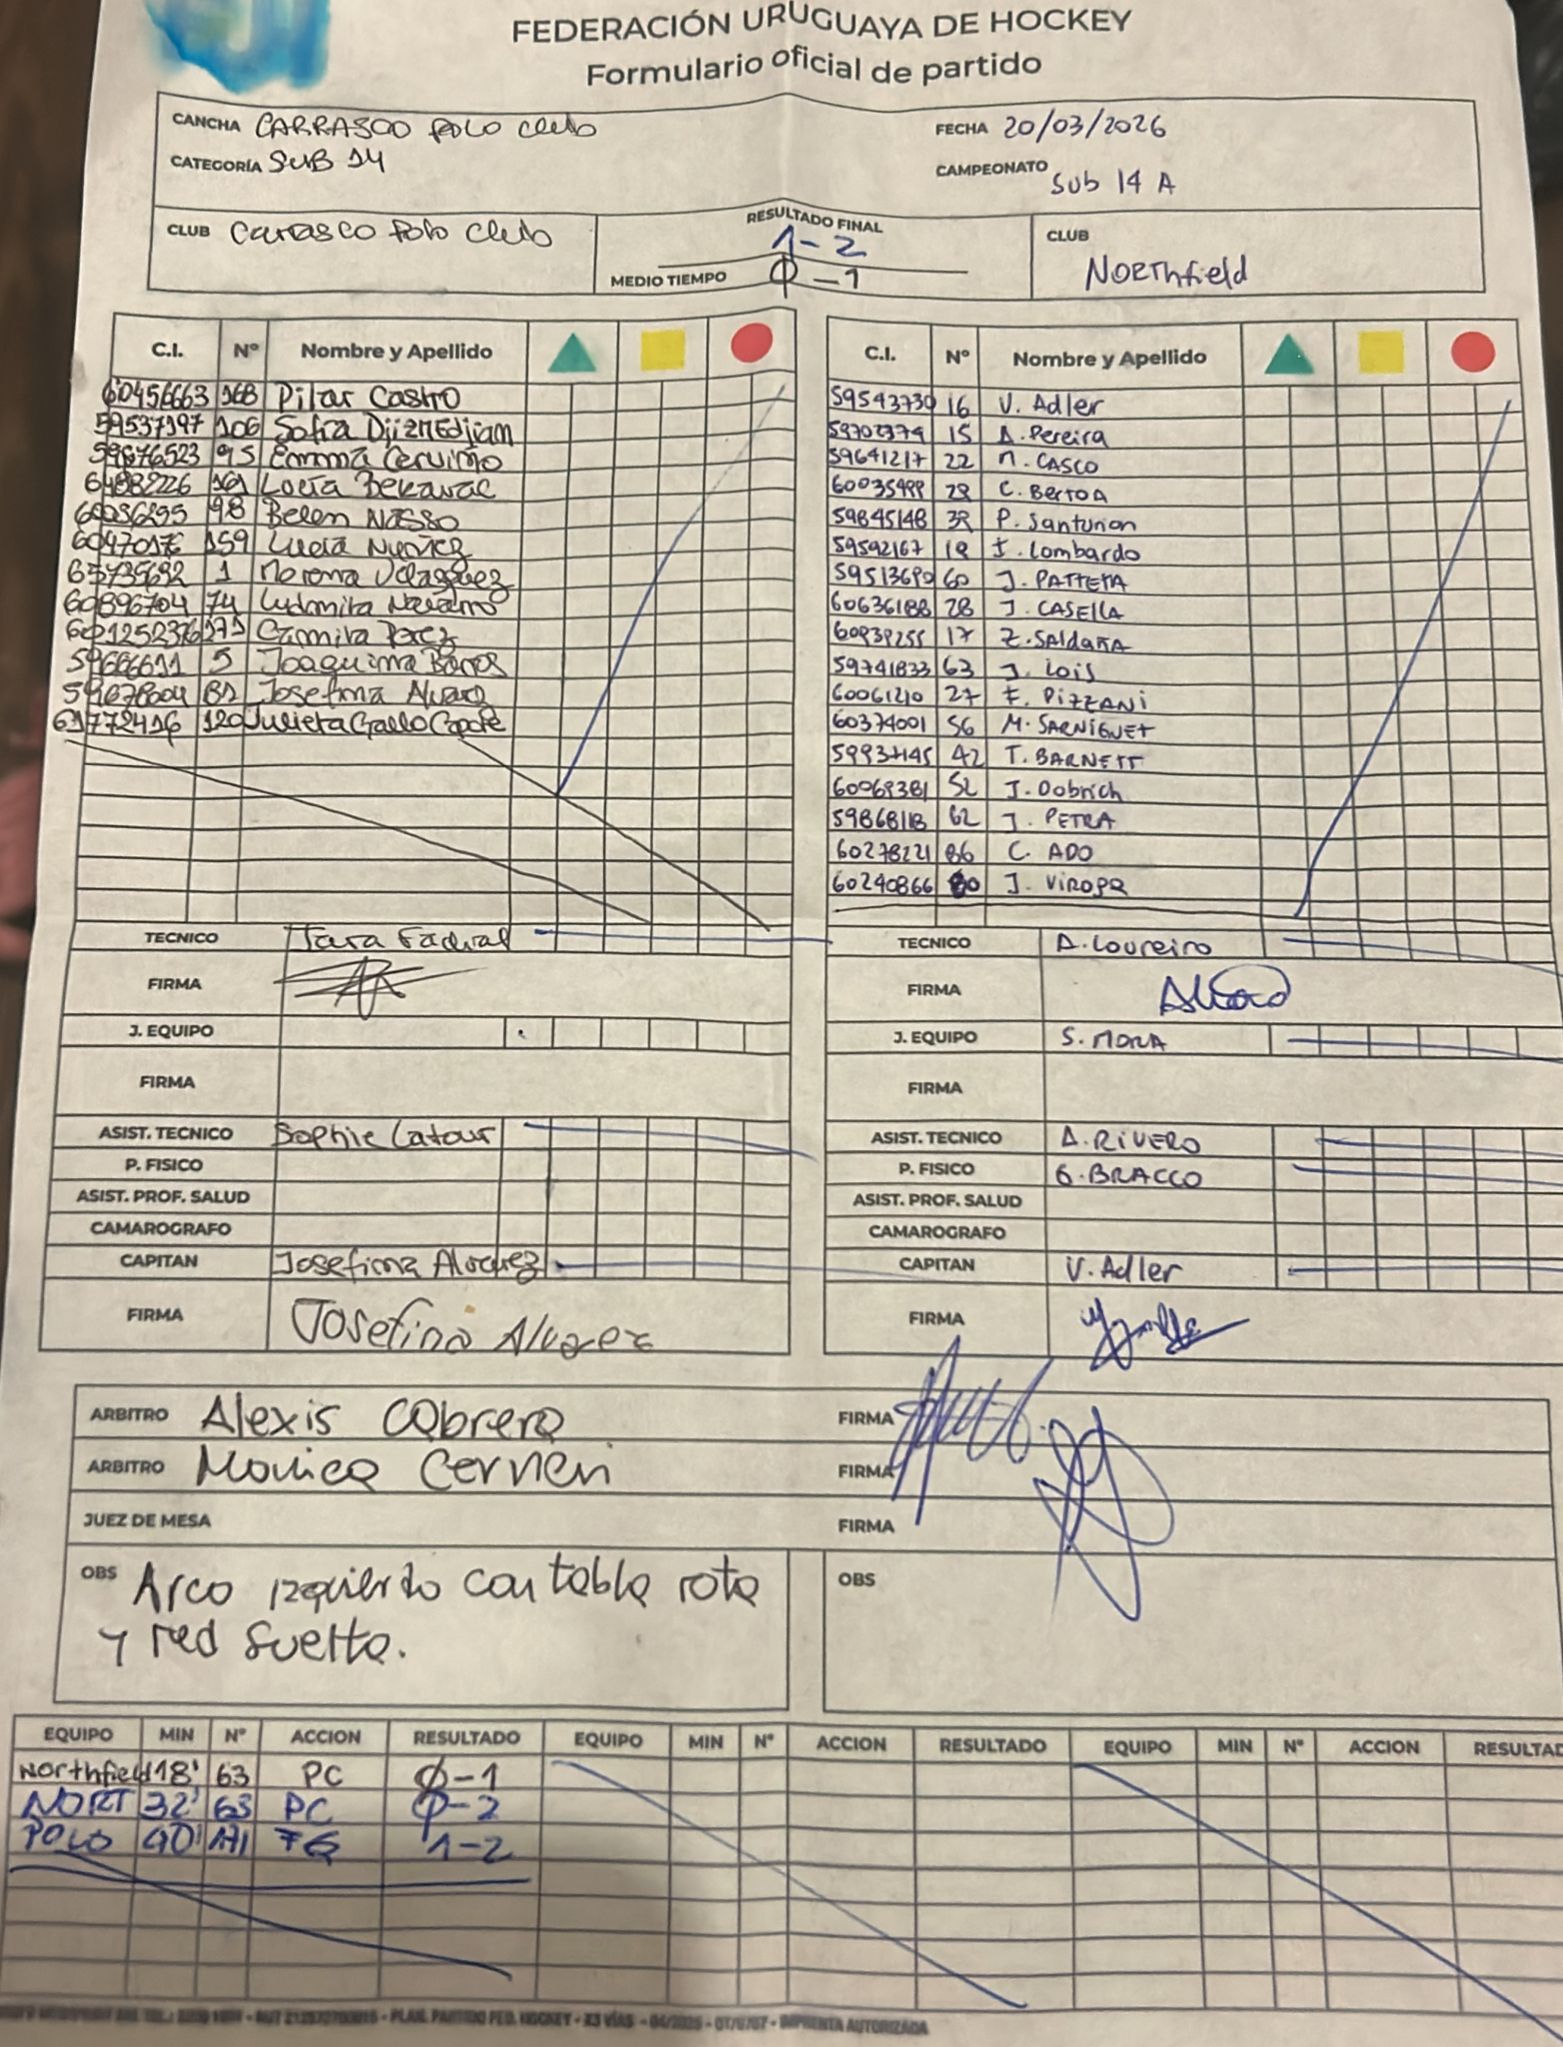 FEDERACIÓN URUGUAYA DE HOCKEY
Formulario oficial de partido
CANCHA CARRASCO POLO Club
FECHA 20/03/2026
CATEGORÍA SUB 14
CAMPEONATO Sub 14 A
CLUB Carrasco Polo Club
RESULTADO FINAL 1-2
MEDIO TIEMPO 0-1
CLUB NORthfield
C.I. Nº Nombre y Apellido
60456663 168 Pilar Castro
59537197 106 Sofia
59676523 95 Emma Cerviño
98 Belen Nasso
159 Lucia
1 Morena Velazquez
60896704 74 Ludmila Navarro
Camila Perez
59666611 5 Joaquina Barros
59678004 81 Josefina Alvarez
61772416 120 Julieta Gallo
C.I. Nº Nombre y Apellido
59543730 16 V. Adler
15 A. Pereira
59641217 22 M. CASCO
C. Bertoa
59845148 P. Santurion
59592167 I. Lombardo
60 J. PATTETA
60636188 28 J. CASELLA
17 Z. SALDAÑA
59741833 63 J. Lois
60061210 27 F. PIZZANI
60374001 56 M. SARNIGUET
42 T. BARNETT
52 J. Dobrich
59868118 62 J. PETRA
60278221 86 C. ADO
60240866 80
TECNICO
FIRMA
J. EQUIPO
FIRMA
ASIST. TECNICO Sophie Latour
P. FISICO
ASIST. PROF. SALUD
CAMAROGRAFO
CAPITAN Josefina Alvarez
FIRMA Josefina Alvarez
TECNICO A. Loureiro
FIRMA
J. EQUIPO S. MORA
FIRMA
ASIST. TECNICO A. RIVERO
P. FISICO G. BRACCO
ASIST. PROF. SALUD
CAMAROGRAFO
CAPITAN V. Adler
FIRMA
ARBITRO Alexis Cabrera
FIRMA
ARBITRO Monica Cerneri
FIRMA
JUEZ DE MESA
FIRMA
OBS Arco izquierdo con tabla rota
y red suelta.
OBS
EQUIPO MIN Nº ACCION RESULTADO EQUIPO MIN Nº ACCION RESULTADO EQUIPO MIN Nº ACCION RESULTAD
Northfield 18' 63 PC 0-1
NORT 32' 63 PC 0-2
POLO 40' 171 FG 1-2
PLAN. PARTIDO FED. HOCKEY - X3 VÍAS - 04/2025 - IMPRENTA AUTORIZADA